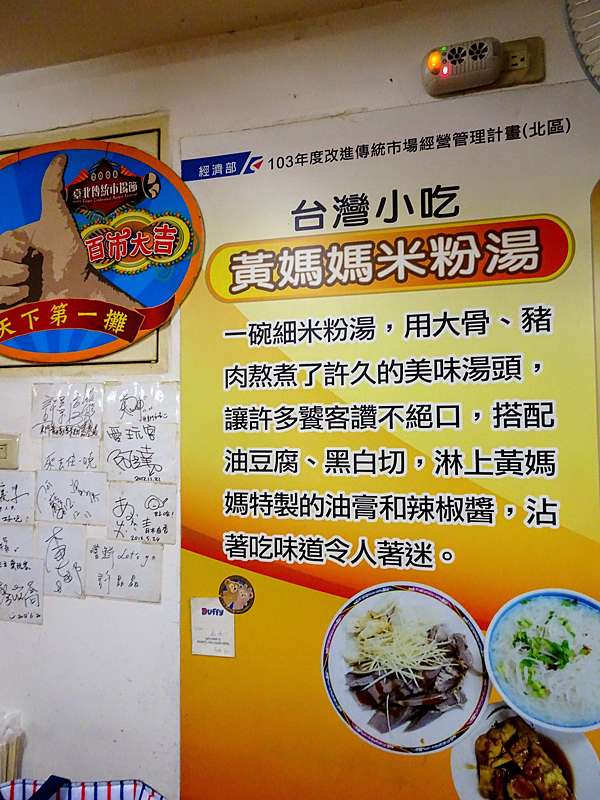 經濟部 103年度改進傳統市場經營管理計畫(北區)
台灣小吃
黃媽媽米粉湯
一碗細米粉湯，用大骨、豬
肉熬煮了許久的美味湯頭，
讓許多饕客讚不絕口，搭配
油豆腐、黑白切，淋上黃媽
媽特製的油膏和辣椒醬，沾
著吃味道令人著迷。
2008
臺北傳統市場節
百市大吉
天下第一攤
愛玩客
2012.11.21
Let's go
Duffy